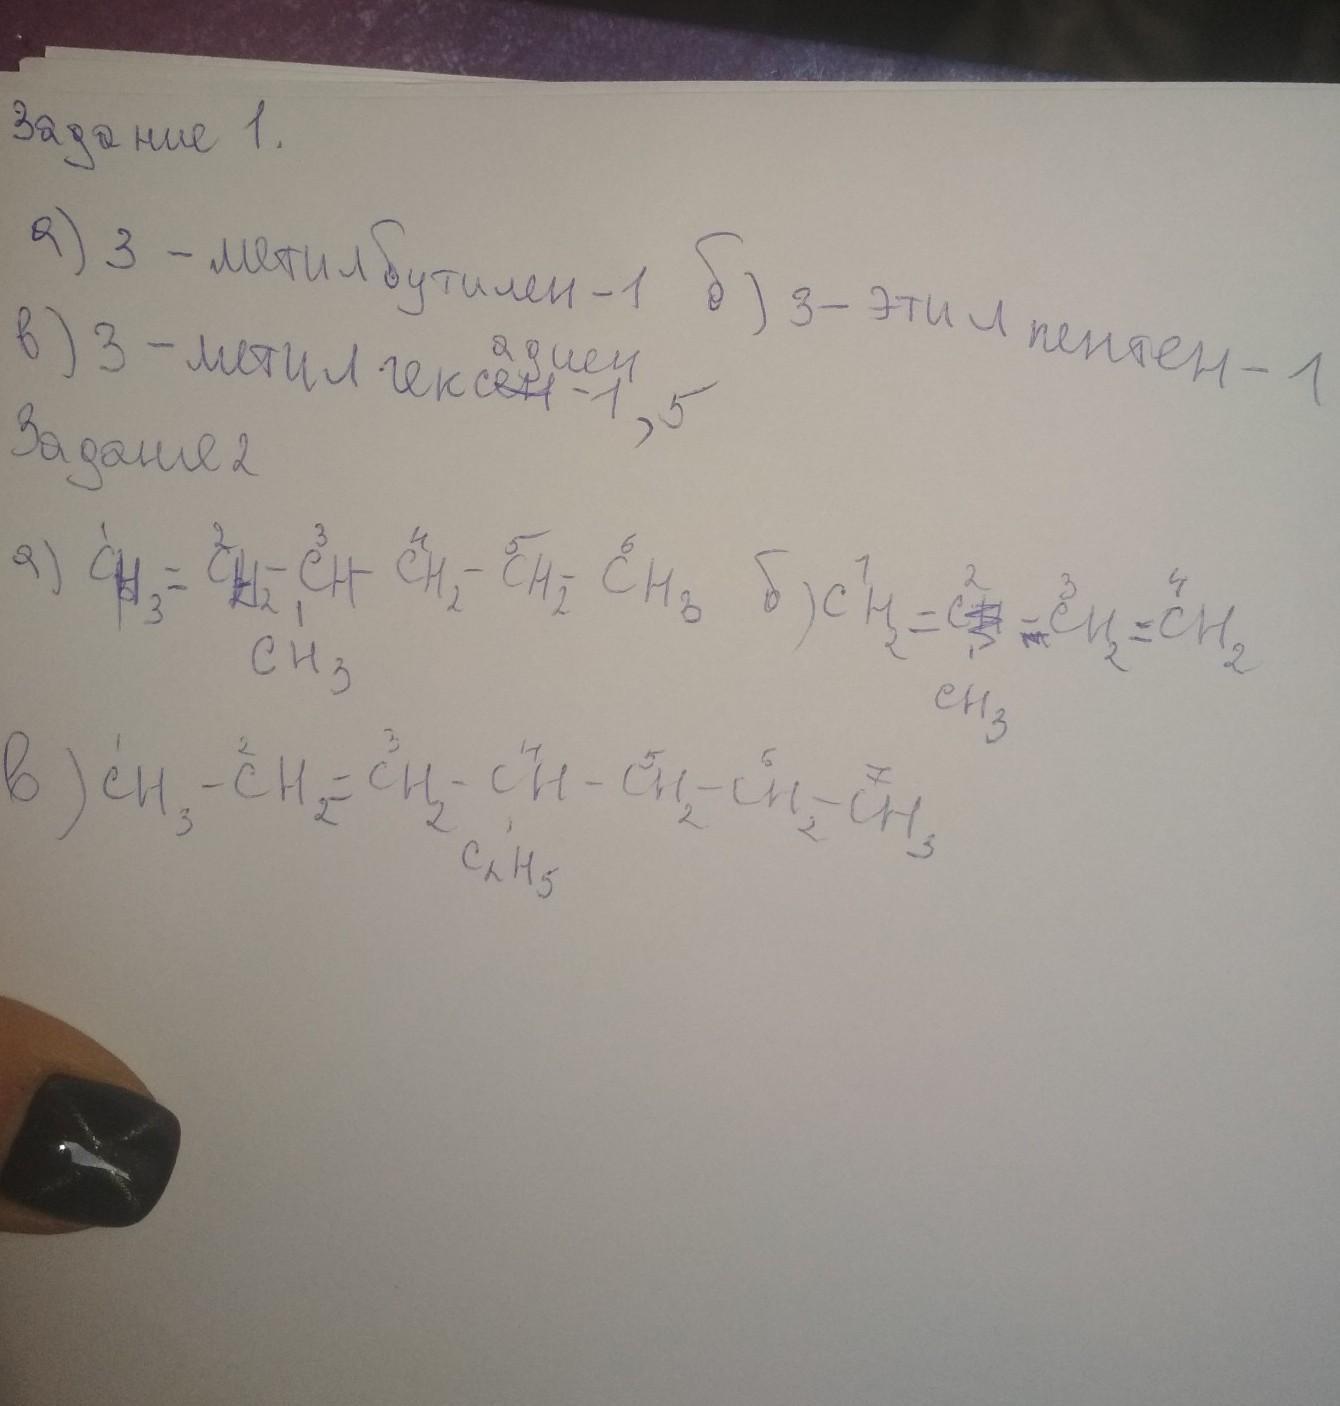 Задание 1.
а) 3 - метилбутилен-1 б) 3-этилпентен-1
в) 3 - метилгексадиен-1,5
Задание 2
а) CH3 = CH2 - CH - CH2 - CH2 - CH3 б) CH2 = C - CH2 = CH2
CH3 CH3
в) CH3 - CH2 = CH2 - CH - CH2 - CH2 - CH3
C2H5